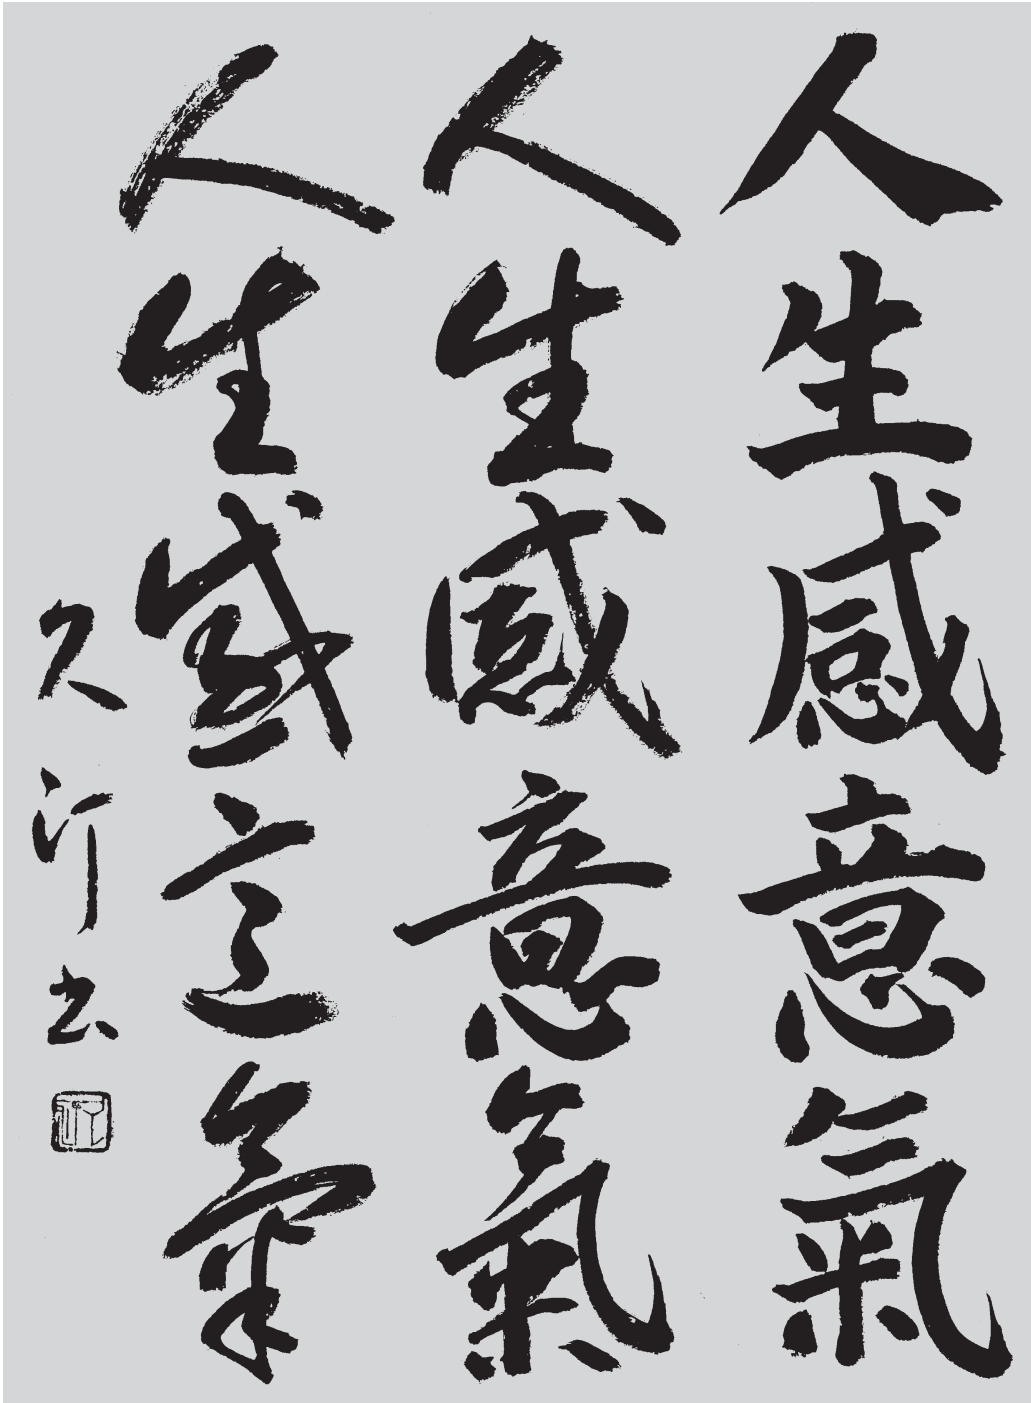 人生感意氣
人生感意氣
人生感意氣
久汀書